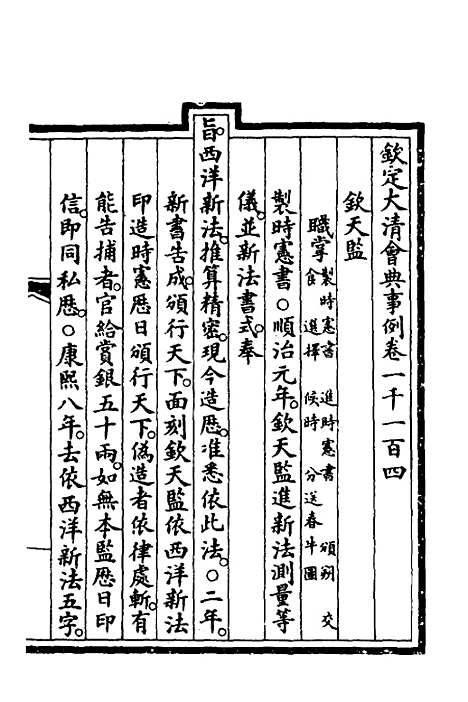 欽定大清會典事例卷一千一百四
欽天監
職掌 製時憲書 進時憲書 頒朔 交
食 選擇 候時 分送春牛圖
製時憲書○順治元年。欽天監進新法測量等
儀。並新法書式。奉
旨。西洋新法。推算精密。現今造厯。准悉依此法。○二年。
新書告成。頒行天下。面刻欽天監依西洋新法
印造時憲厯日頒行天下。偽造者依律處斬。有
能告捕者。官給賞銀五十兩。如無本監厯日印
信。即同私厯。○康熙八年。去依西洋新法五字。